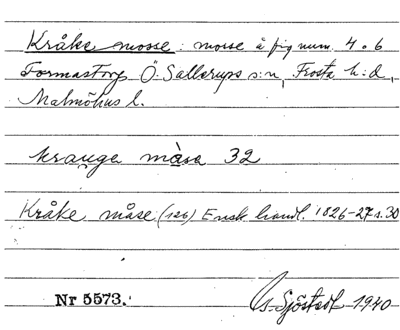 Kråke mosse : mosse å fig num. 4 o 6
Formastorp Ö. Sallerups s:n, Frosta h:d,
Malmöhus l.
krauga måsa 32
Kråke måse (126) Ensk. handl. 1826-27 s. 30
Nr 5573. G. Sjöstedt 1940